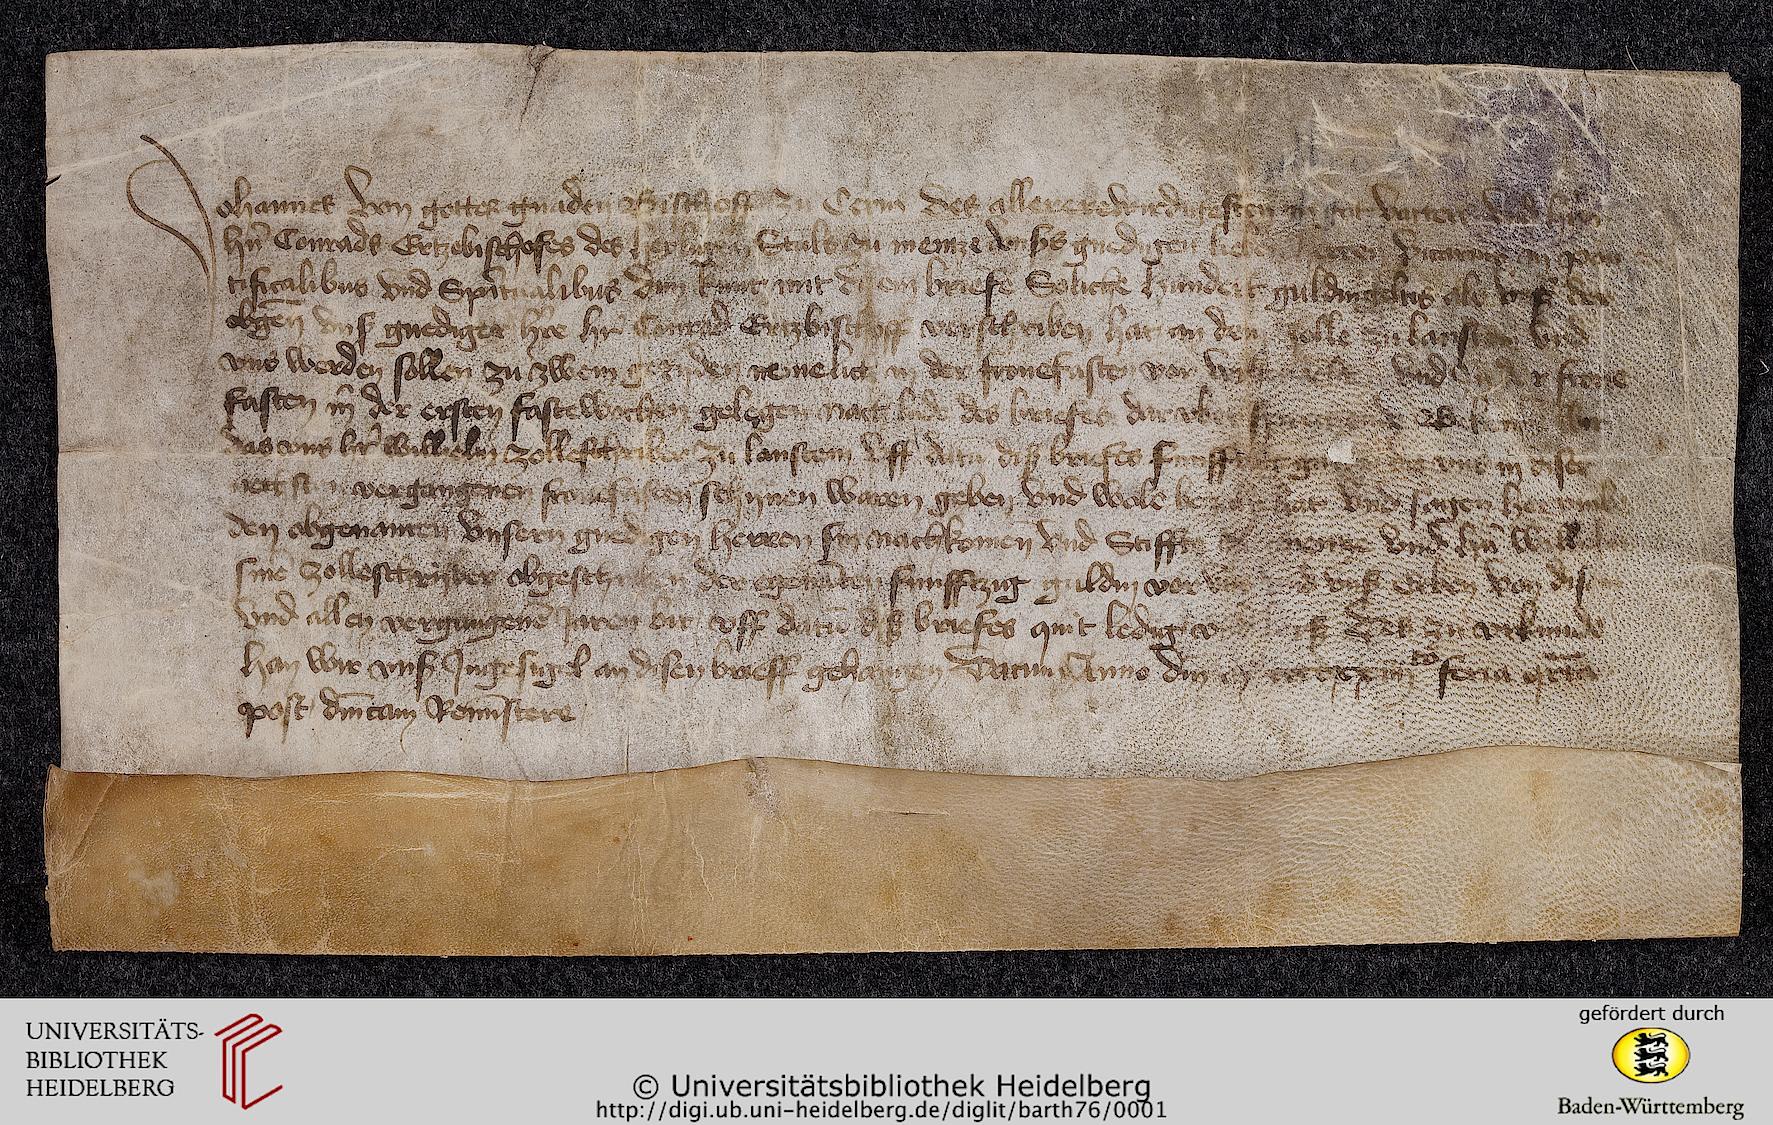 Johannes von gottes gnaden Bischoff zu des allererewirdigesten in got vatter und
hern Conrads Ertzebischofes des heyligen Stuls zu mentze unsers gnedigen lieben herren in pon
tificalibus und Spiritualibus dun kunt mit disem briefe Soliche hundert guldin gelts als uns der
obgen unser gnediger her Conrad Ertzbischoff verschriben hat an dem zolle zu lanstein und
uns werden sollen zu zwein geziden nemelich in der fronefasten vor und in der frone
fasten in der ersten fastewochen gelegen nach lude des briefes daruber
das uns her Wilhelm zolleschriber zu lanstein uff datum diss briefes funfftzig guldin uns in diser
nechsten vergangenen fronefasten schynen waren geben und wole betzalt hat und sagen
den obgenanten unsern gnedigen herren sin nachkomen und Stifft zu mentze und hern Wilhelm
sine zolleschriber obgeschriben der egenanten funfftzig guldin vor uns und unser erben von disem
und allen vergangene Jaren bit uff datum diss briefes quit ledig und Des zu urkunde
han wir unser Ingesigel an disen brieff gehangen Datum Anno dm feria
post dmcam Reminiscere
UNIVERSITÄTS-
BIBLIOTHEK
HEIDELBERG
© Universitätsbibliothek Heidelberg
http://digi.ub.uni-heidelberg.de/diglit/barth76/0001
gefördert durch
Baden-Württemberg